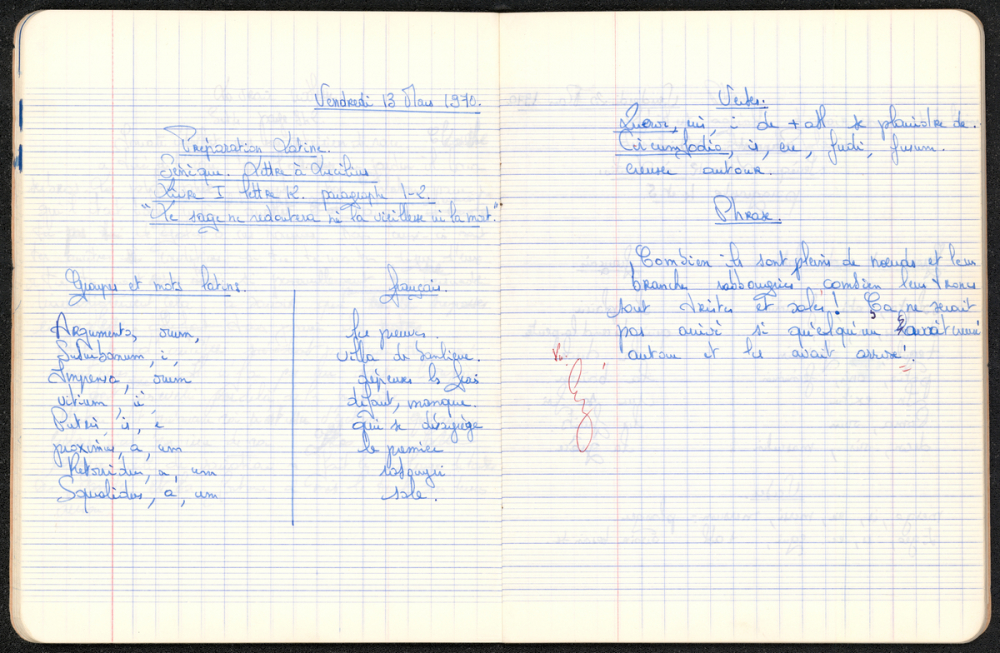 Vendredi 13 Mars 1970.
Préparation Latine.
Sénèque. Lettre à Lucilius
Livre I lettre 12. paragraphe 1-2.
"Le sage ne redoutera ni la vieillesse ni la mort."
Groupes et mots latins. français.
Argumenta, orum, les preuves.
Suburbanum, i, villa de banlieue.
Impensa, arum dépenses les frais
vitium, ii, défaut, manque.
Putris, is, e qui se désagrège
proximus, a, um le premier
Retorridus, a, um rabougri
Squalidus, a, um sale.
Verbes.
Queror, eris, i de + abl se plaindre de.
Circumfodio, is, ere, fodi, fossum.
creuser autour.
Phrase.
Combien ils sont pleins de noeuds et leurs
branches rabougries combien leurs troncs
sont tristes et sales! Ça ne serait
pas arrivé si quelqu'un avait creusé
autour et les avait arrosé.
Vu